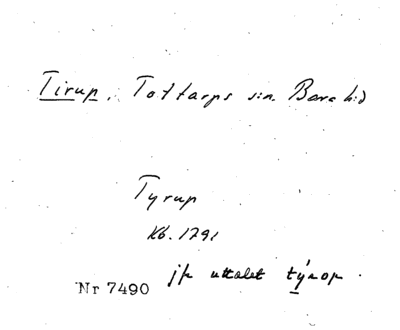 Tirup, Tottarps sn. Bara hd
Tyrup
Kb. 1791
jfr uttalet týrop.
Nr 7490